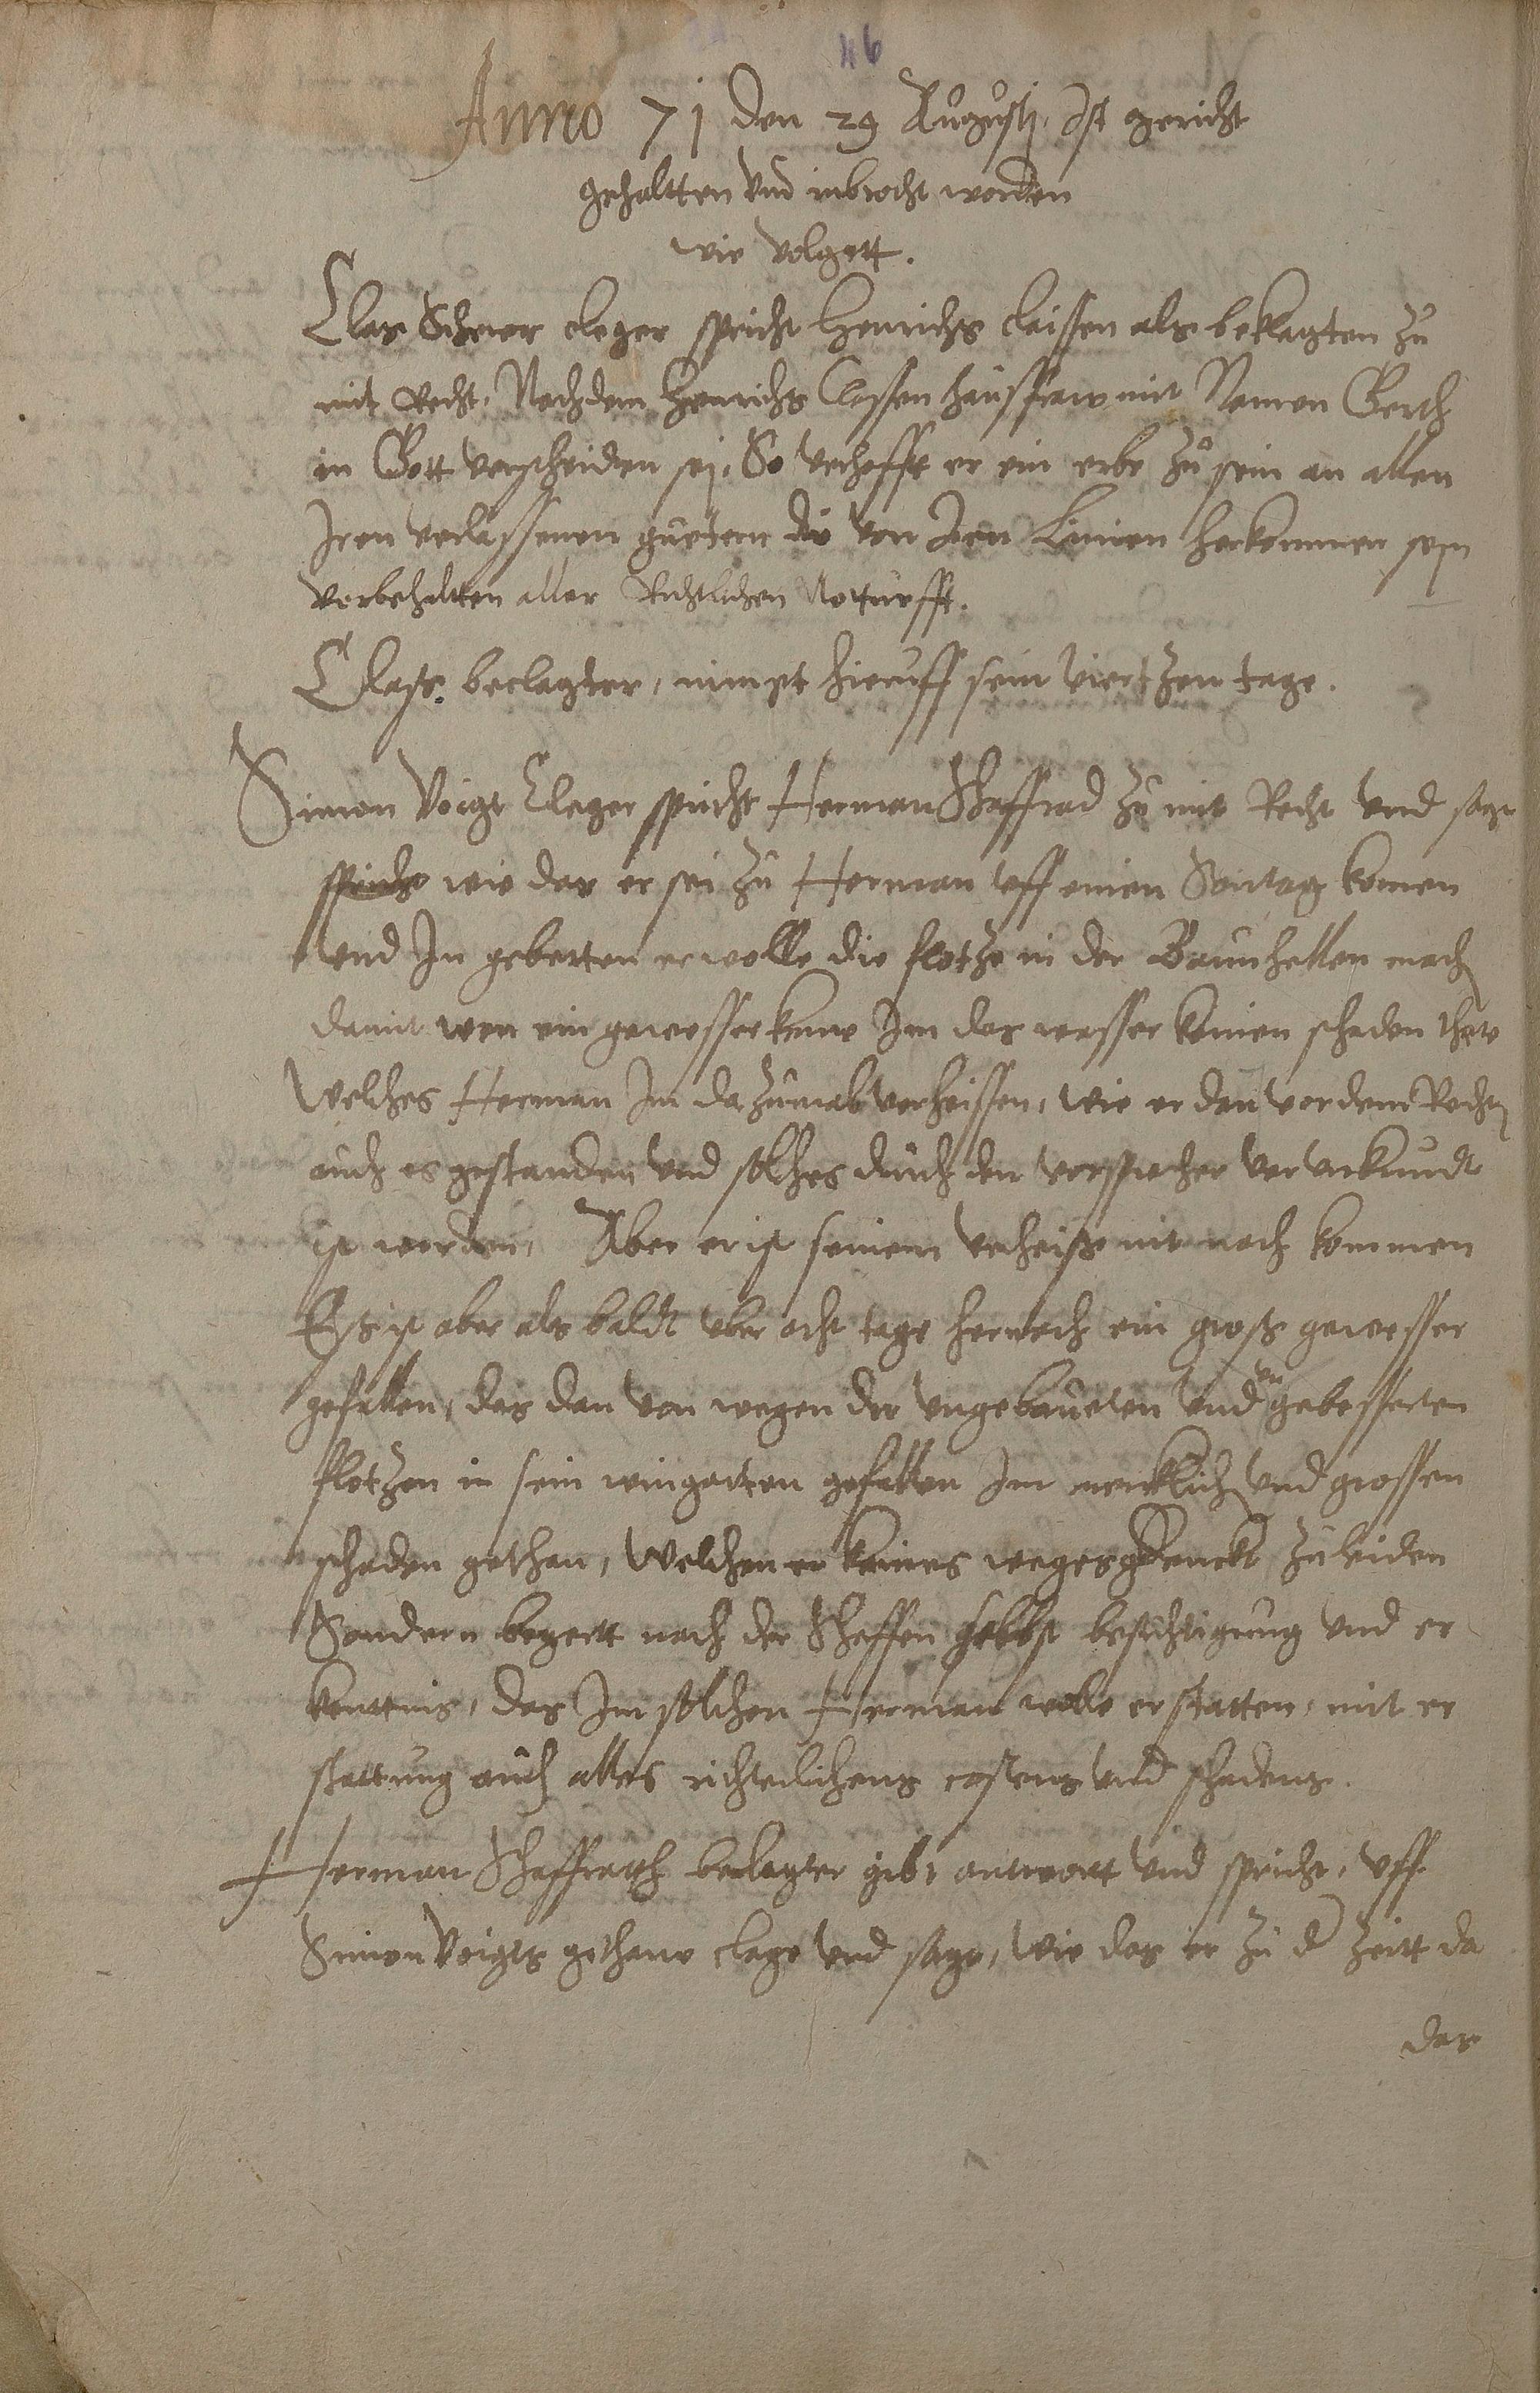 46
Anno 71 den 29 Augusti, Ist gericht
gehaltten und inbrocht worden
wie volgett.
Clas Scherer cleger spricht Henrichs claissen als beklagten zu
mit Recht, Nachdem Henrichs Clossen hausfraw mit Namen Gerth
in Gott verscheiden sej, So verhofft er ein erbe zu sein an allen
Iren verlassenen guetern die von Iren Linien herkommen sein
vorbehaltten aller Richtlichen Notturfft.
Class beclagter, nimpt hieruff sein viertzen tage.
Simon Voigt Cleger spricht Herman Schaffrad zu mit Recht und sagt
spricht wie das er sei zu Herman uff einen Sontag komen
und In gebetten er wolle die flotze in der Baumhellen mach
damit wen ein gewesser keme Im das wasser keinen schaden thete
Welches Herman Im dazumal verheissen, wie er dan vor dem Rechte
auch es gestanden und solches durch den vorsprecher verurkundt
ist worden, Aber er ist seinem verheiss nit nach kommen
Ess ist aber als baldt uber acht tage hernoch ein gross gewesser
gefallen, das dan von wegen der ungebaueten und un gebesserten
flotzen in sein wingarten gefallen Im mercklich und grossen
schaden gethan, Welchen er keines weges gedenckt zu leiden
Sondern begertt nach der Scheffen selbst besichtigung und er
kenttnis, das Im solchen Herman wolle erstatten, mit er
stattung auch alles richterlichens costens und schadens.
Herman Schaffrath beclagter gibt antwortt und spricht, uff
Simon Voigts gethane clage und sage, Wie das er zu d zeitt da
das